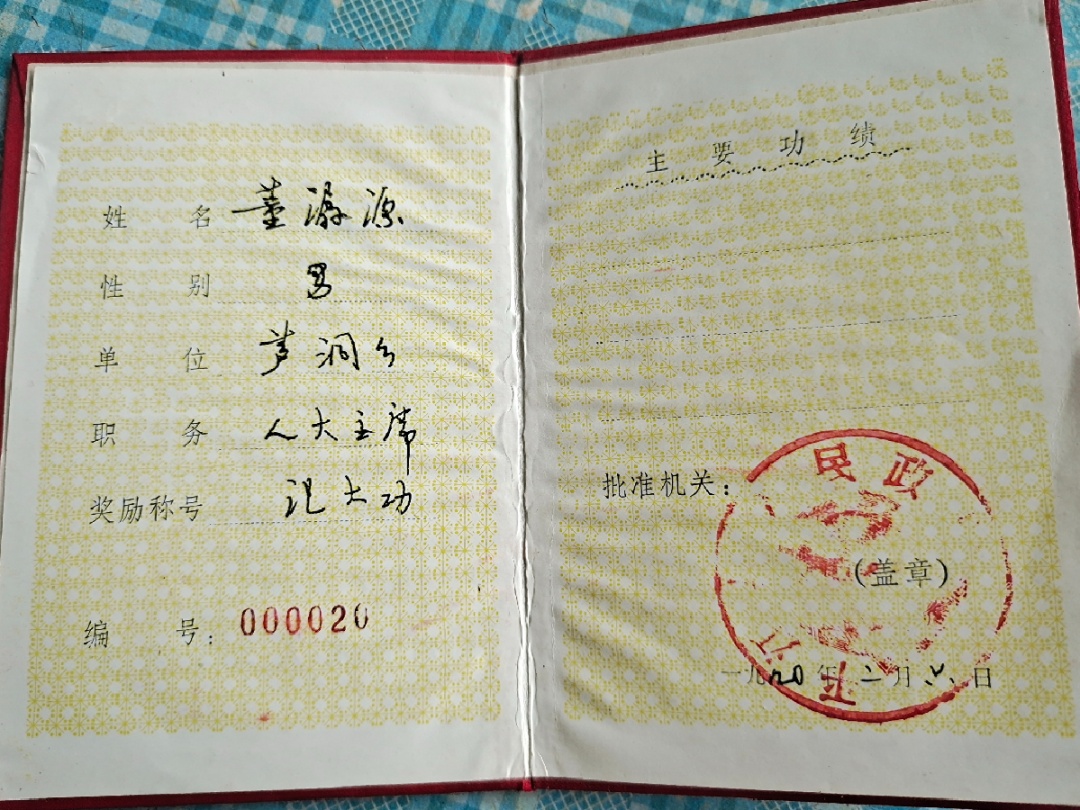 姓 名 董潺源
性 别 男
单 位 芦洞乡
职 务 人大主席
奖励称号 记大功
编 号: 000020
主要功绩
批准机关:
民政
(盖章)
一九 年二月六日